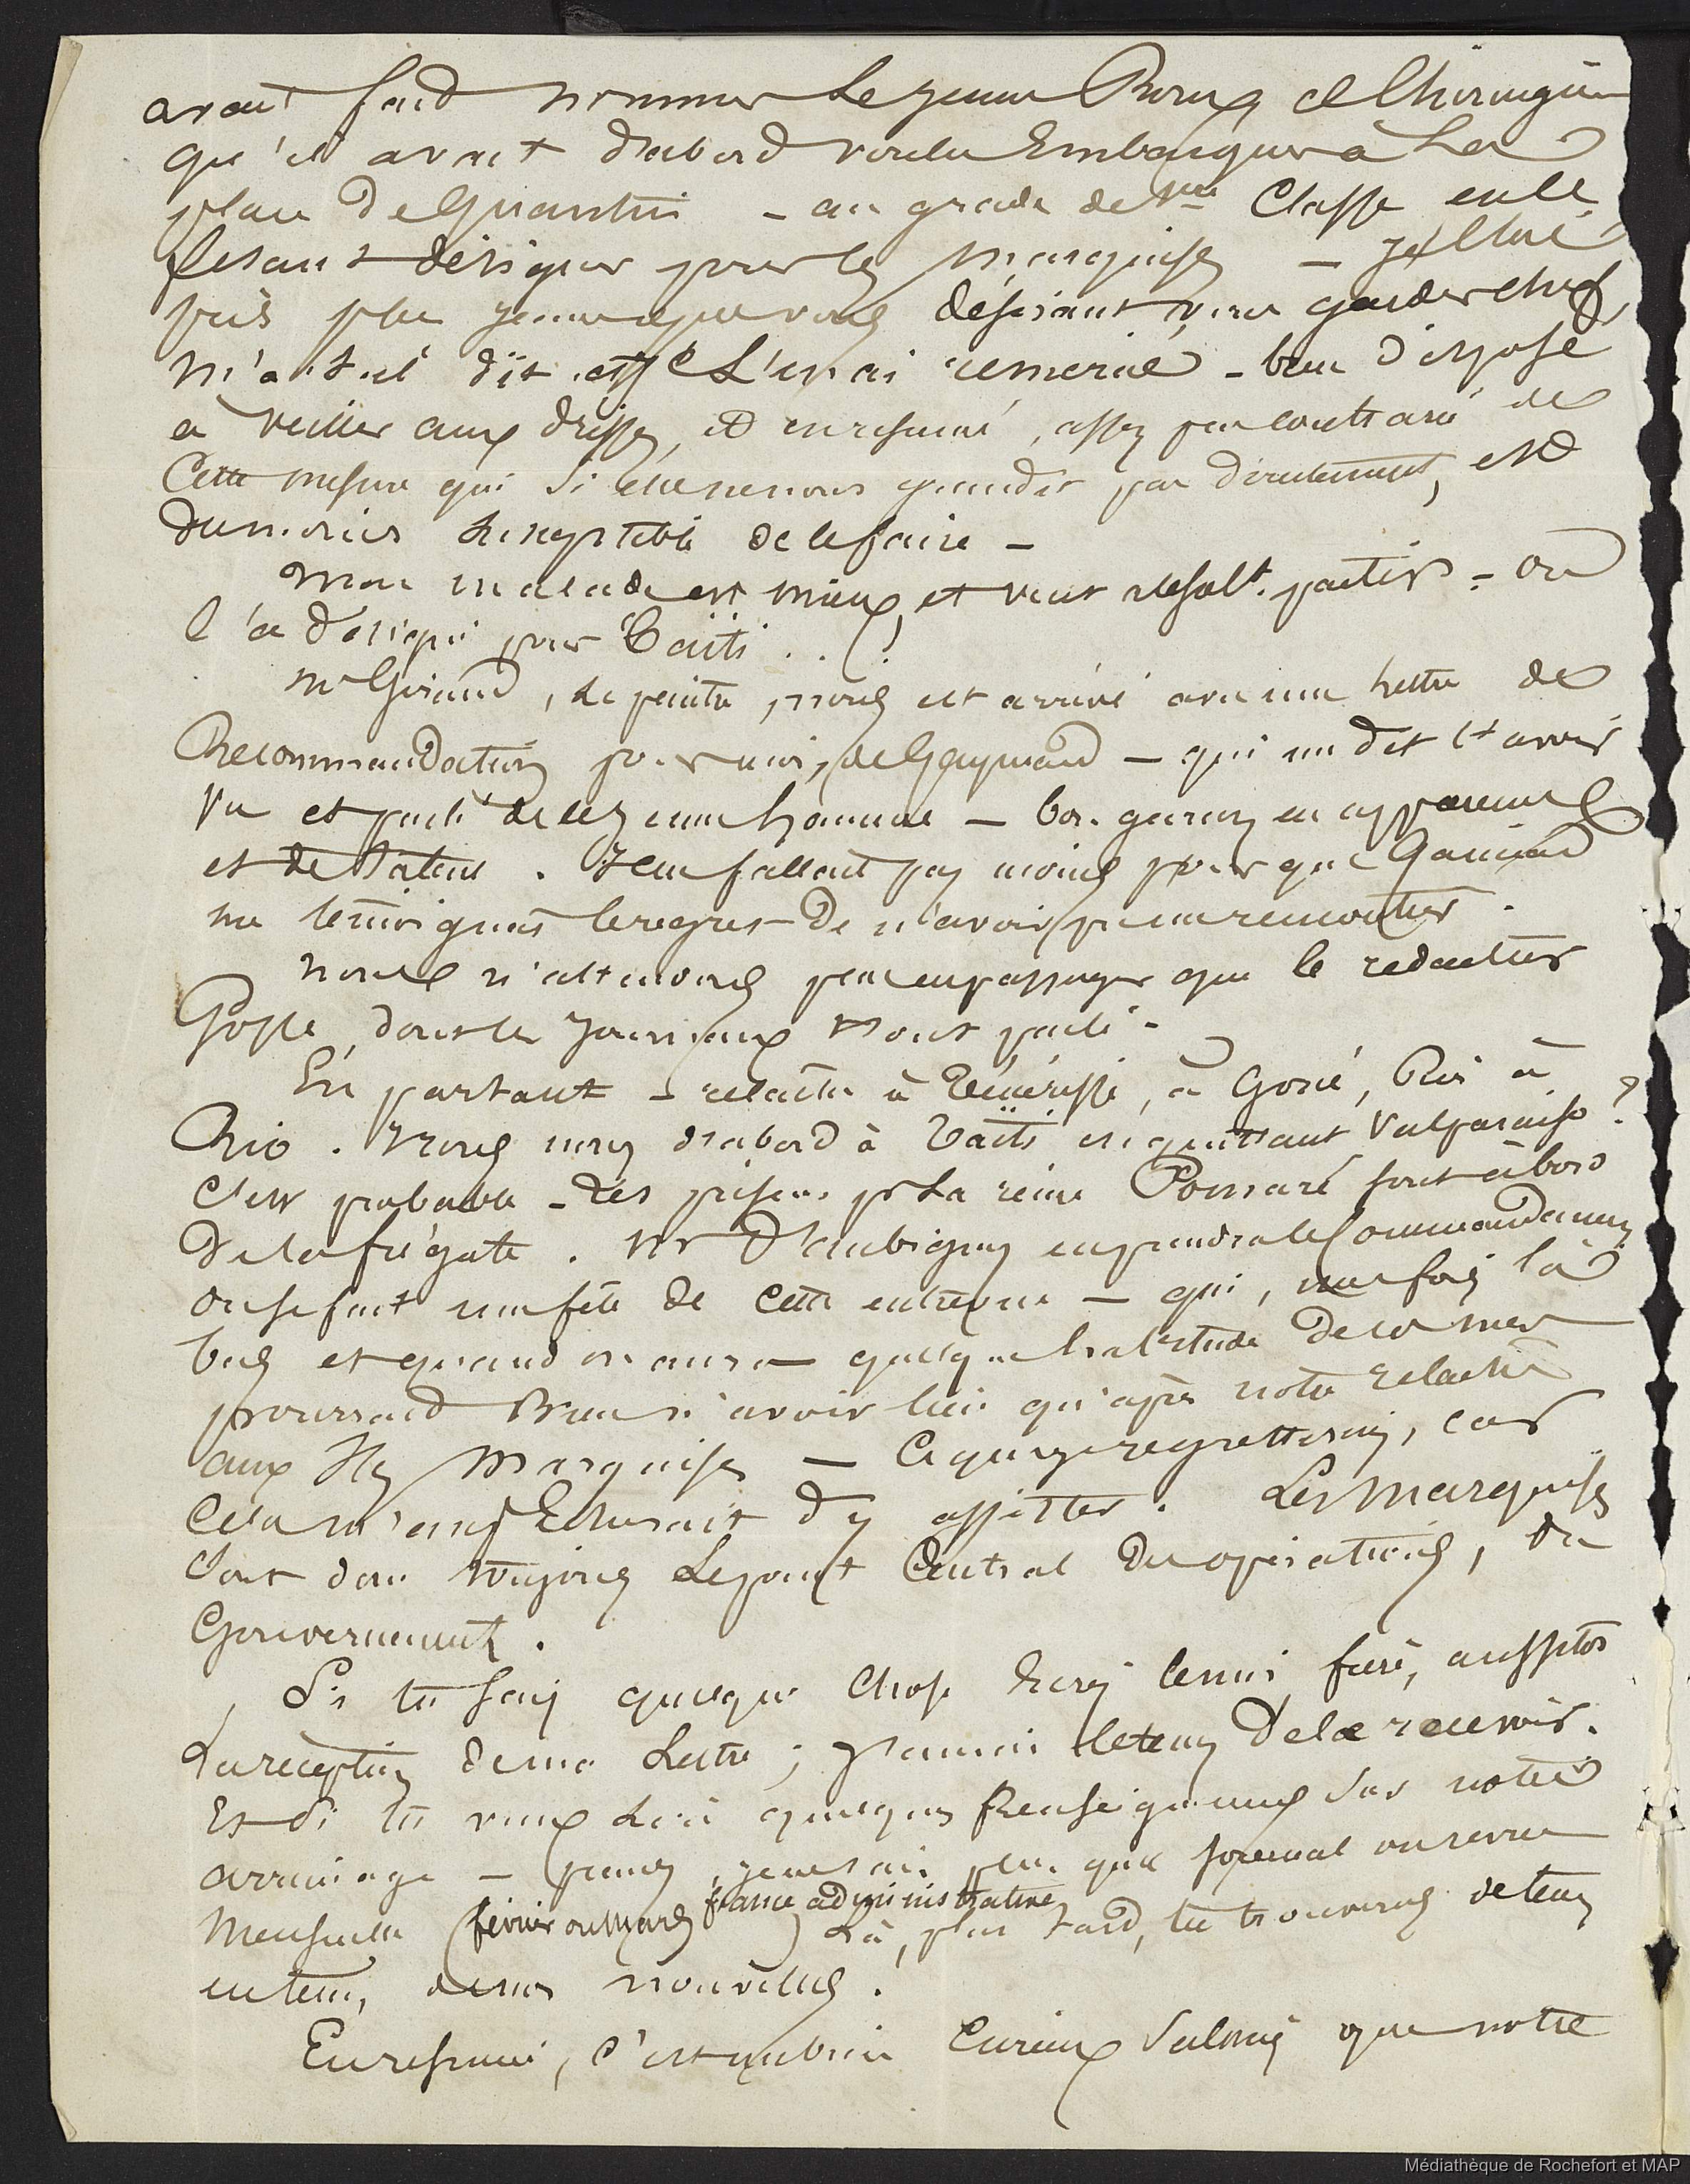 avait fait nommer le jeune Roux chirurgien
qu'il avait d'abord voulu embarquer à la
place de Guantin - au grade de 1ère Classe en le
fesant désigner pour les Marquises - je l'eusse
pris plus jeune que vous désirant vous garder chef,
m'a-t-il dit. et je l'en ai remercié - bien disposé
à veiller aux drisses, et en résumé, assez peu contrarié de
Cette mesure qui si elle ne nous grandit pas directement, est
du moins susceptible de le faire -
Mon malade est mieux, et veut absolt. partir - on
l'a désigné pour Taïti . . .
Mr Giraud, le peintre, nous est arrivé avec une lettre de
Recommandation pour moi, de Gaymard - qui me dit t'avoir
vu et parlé de ce jeune homme - bon garçon en apparence
et de talent. Il n'en fallait pas moins pour que Gaimard
me témoignât le regret de n'avoir pu me rencontrer.
nous n'attendons plus en passager que le rédacteur
Gosse, dont les journaux t'ont parlé -
En partant - relâche à Ténériffe, à Gorée, Puis à
Rio. Irons nous d'abord à Taïti en quittant Valparaiso ?
C'est probable - Les présens pr la reine Pomaré sont à bord
de la frégate. Mr d'Aubigny en prendra le Commandement
on se fait une fête de cette entrevue - qui, une fois là
bas et quand on aura quelque habitude de la mer
pourrait Bien n'avoir lieu qu'après notre relâche
aux Iles Marquises - Ce que je regretterais, car
Cela m'empêcherait d'y assister. Les Marquises
sont donc toujours le point Central des opérations, du
Gouvernement.
Si tu sais quelque chose Ecris le moi frère, aussitôt
la réception de ma lettre ; j'aurai le tems de la recevoir.
Et si tu veux lire quelques Renseignemens sur notre
arrimage - prends, je ne sais plus quel journal ou revue
Mensuelle (février ou Mars france administrative) Là, plus tard, tu trouveras de tems
en tems, de nos nouvelles.
En résumé, c'est un bien curieux voyage que notre